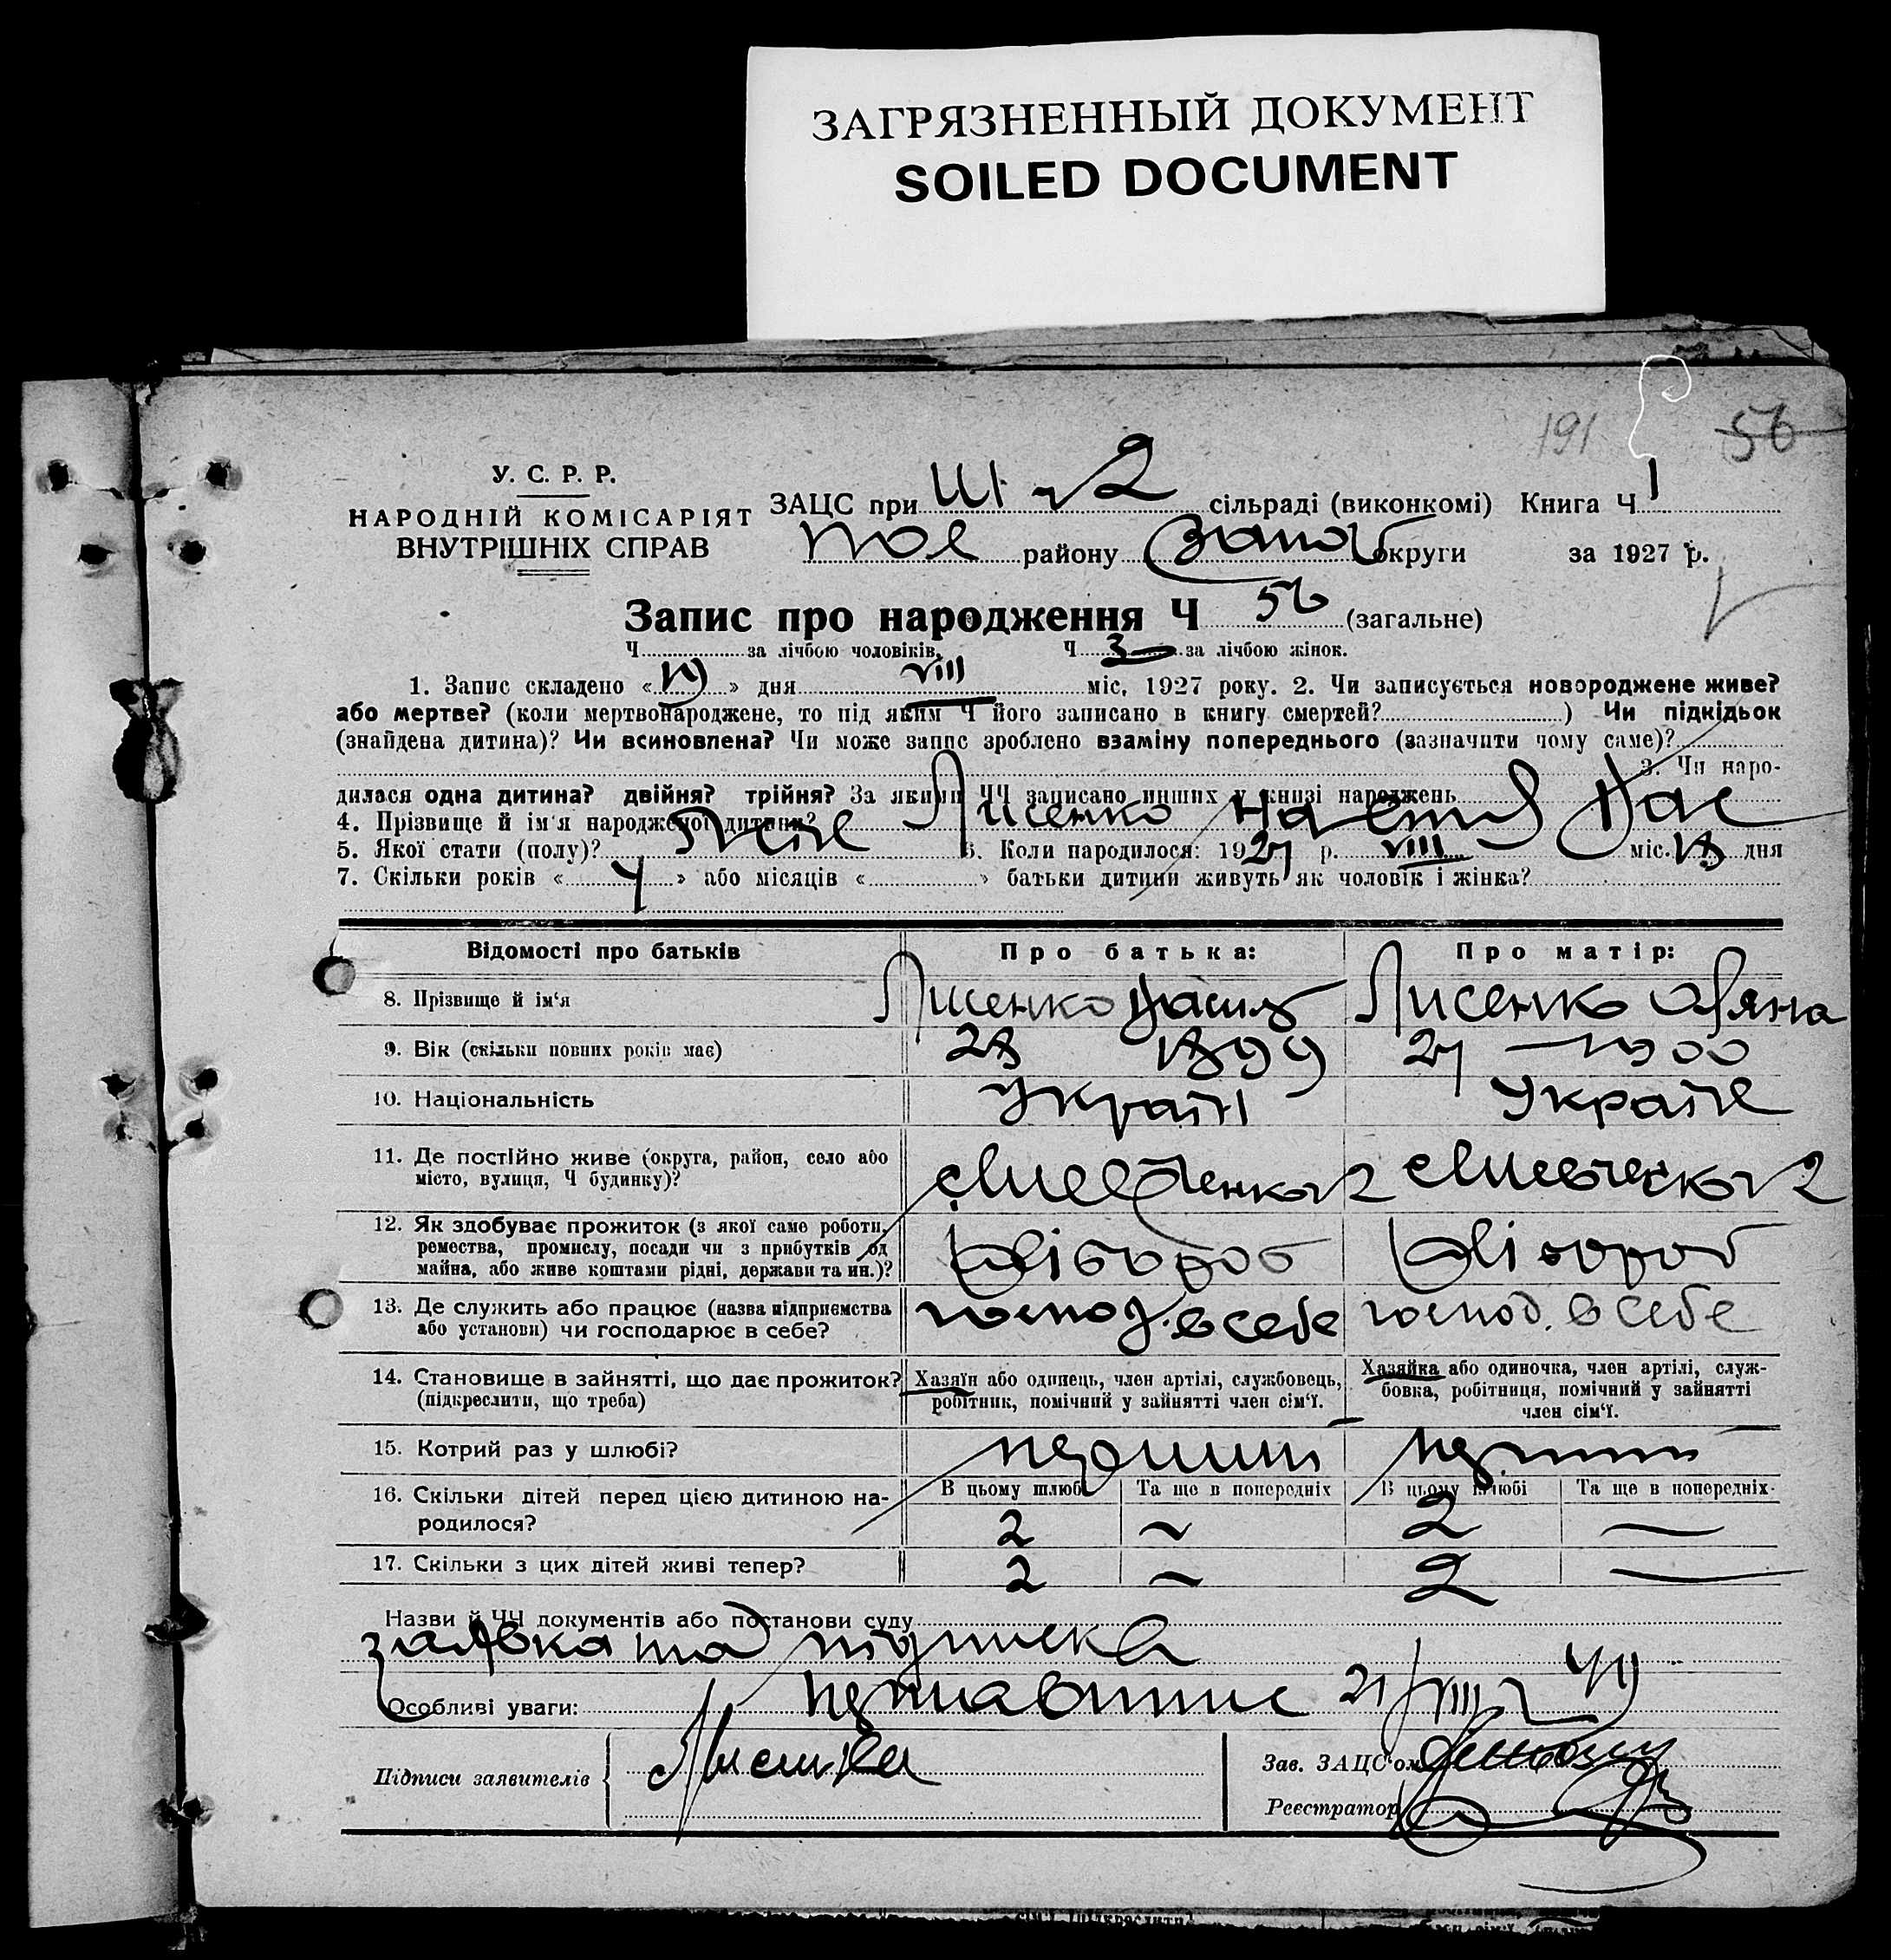 ЗАГРЯЗНЕННЫЙ ДОКУМЕНТ
SOILED DOCUMENT
191 56
У. С. Р. Р.
НАРОДНІЙ КОМІСАРІЯТ
ВНУТРІШНІХ СПРАВ
ЗАЦС при 2 сільраді (виконкомі) Книга Ч 1
району Запор округи за 1927 р.
Запис про народження Ч 56 (загальне)
Ч за лічбою чоловіків. Ч 3 за лічбою жінок.
1. Запис складено « 19 » дня VIII міс. 1927 року. 2. Чи записується новороджене живе?
або мертве? (коли мертвонароджене, то під яким Ч його записано в книгу смертей? ) Чи підкідьок
(знайдена дитина)? Чи всиновлена? Чи може запис зроблено взаміну попереднього (зазначити чому саме)?
3. Чи наро-
дилася одна дитина? двійня? трійня? За якими ЧЧ записано инших у книзі народжень
4. Прізвище й ім'я народженої дитини? Лисенко
5. Якої стати (полу)? 6. Коли народилося: 1927 р. VIII міс. 18 дня
7. Скільки років « 4 » або місяців « » батьки дитини живуть як чоловік і жінка?
Відомості про батьків Про батька: Про матір:
8. Прізвище й ім'я Лисенко Василь Лисенко
9. Вік (скільки повних років має) 28 1899 27 – 1900
10. Національність Україн Україн
11. Де постійно живе (округа, район, село або
місто, вулиця, Ч будинку)?
12. Як здобуває прожиток (з якої саме роботи,
ремества, промислу, посади чи з прибутків од
майна, або живе коштами рідні, держави та ин.)? Хлібороб Хлібороб
13. Де служить або працює (назва підприємства
або установи) чи господарює в себе? господ. в себе господ. в себе
14. Становище в зайнятті, що дає прожиток?
(підкреслити, що треба)
Хазяїн або одинець, член артілі, службовець,
робітник, помічний у зайнятті член сім'ї.
Хазяйка або одиночка, член артілі, служ-
бовка, робітниця, помічний у зайнятті
член сім'ї.
15. Котрий раз у шлюбі? первий первий
16. Скільки дітей перед цією дитиною на-
родилося?
В цьому шлюбі Та ще в попередніх В цьому шлюбі Та ще в попередніх
2 – 2 –
17. Скільки з цих дітей живі тепер? 2 – 2 –
Назви й ЧЧ документів або постанови суду
заявка та підписка
Особливі уваги: 21/VIII
Підписи заявителів Лисенко
Зав. ЗАЦС'ом
Реєстратор